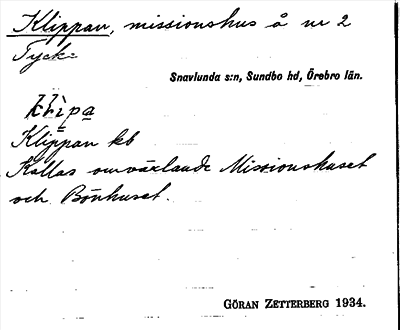 Klippan, missionshus å nr 2
Tyck:
Snavlunda s:n, Sundbo hd, Örebro län.
Klippan kb
Kallas omväxlande Missionshuset
och Bönhuset.
GÖRAN ZETTERBERG 1934.